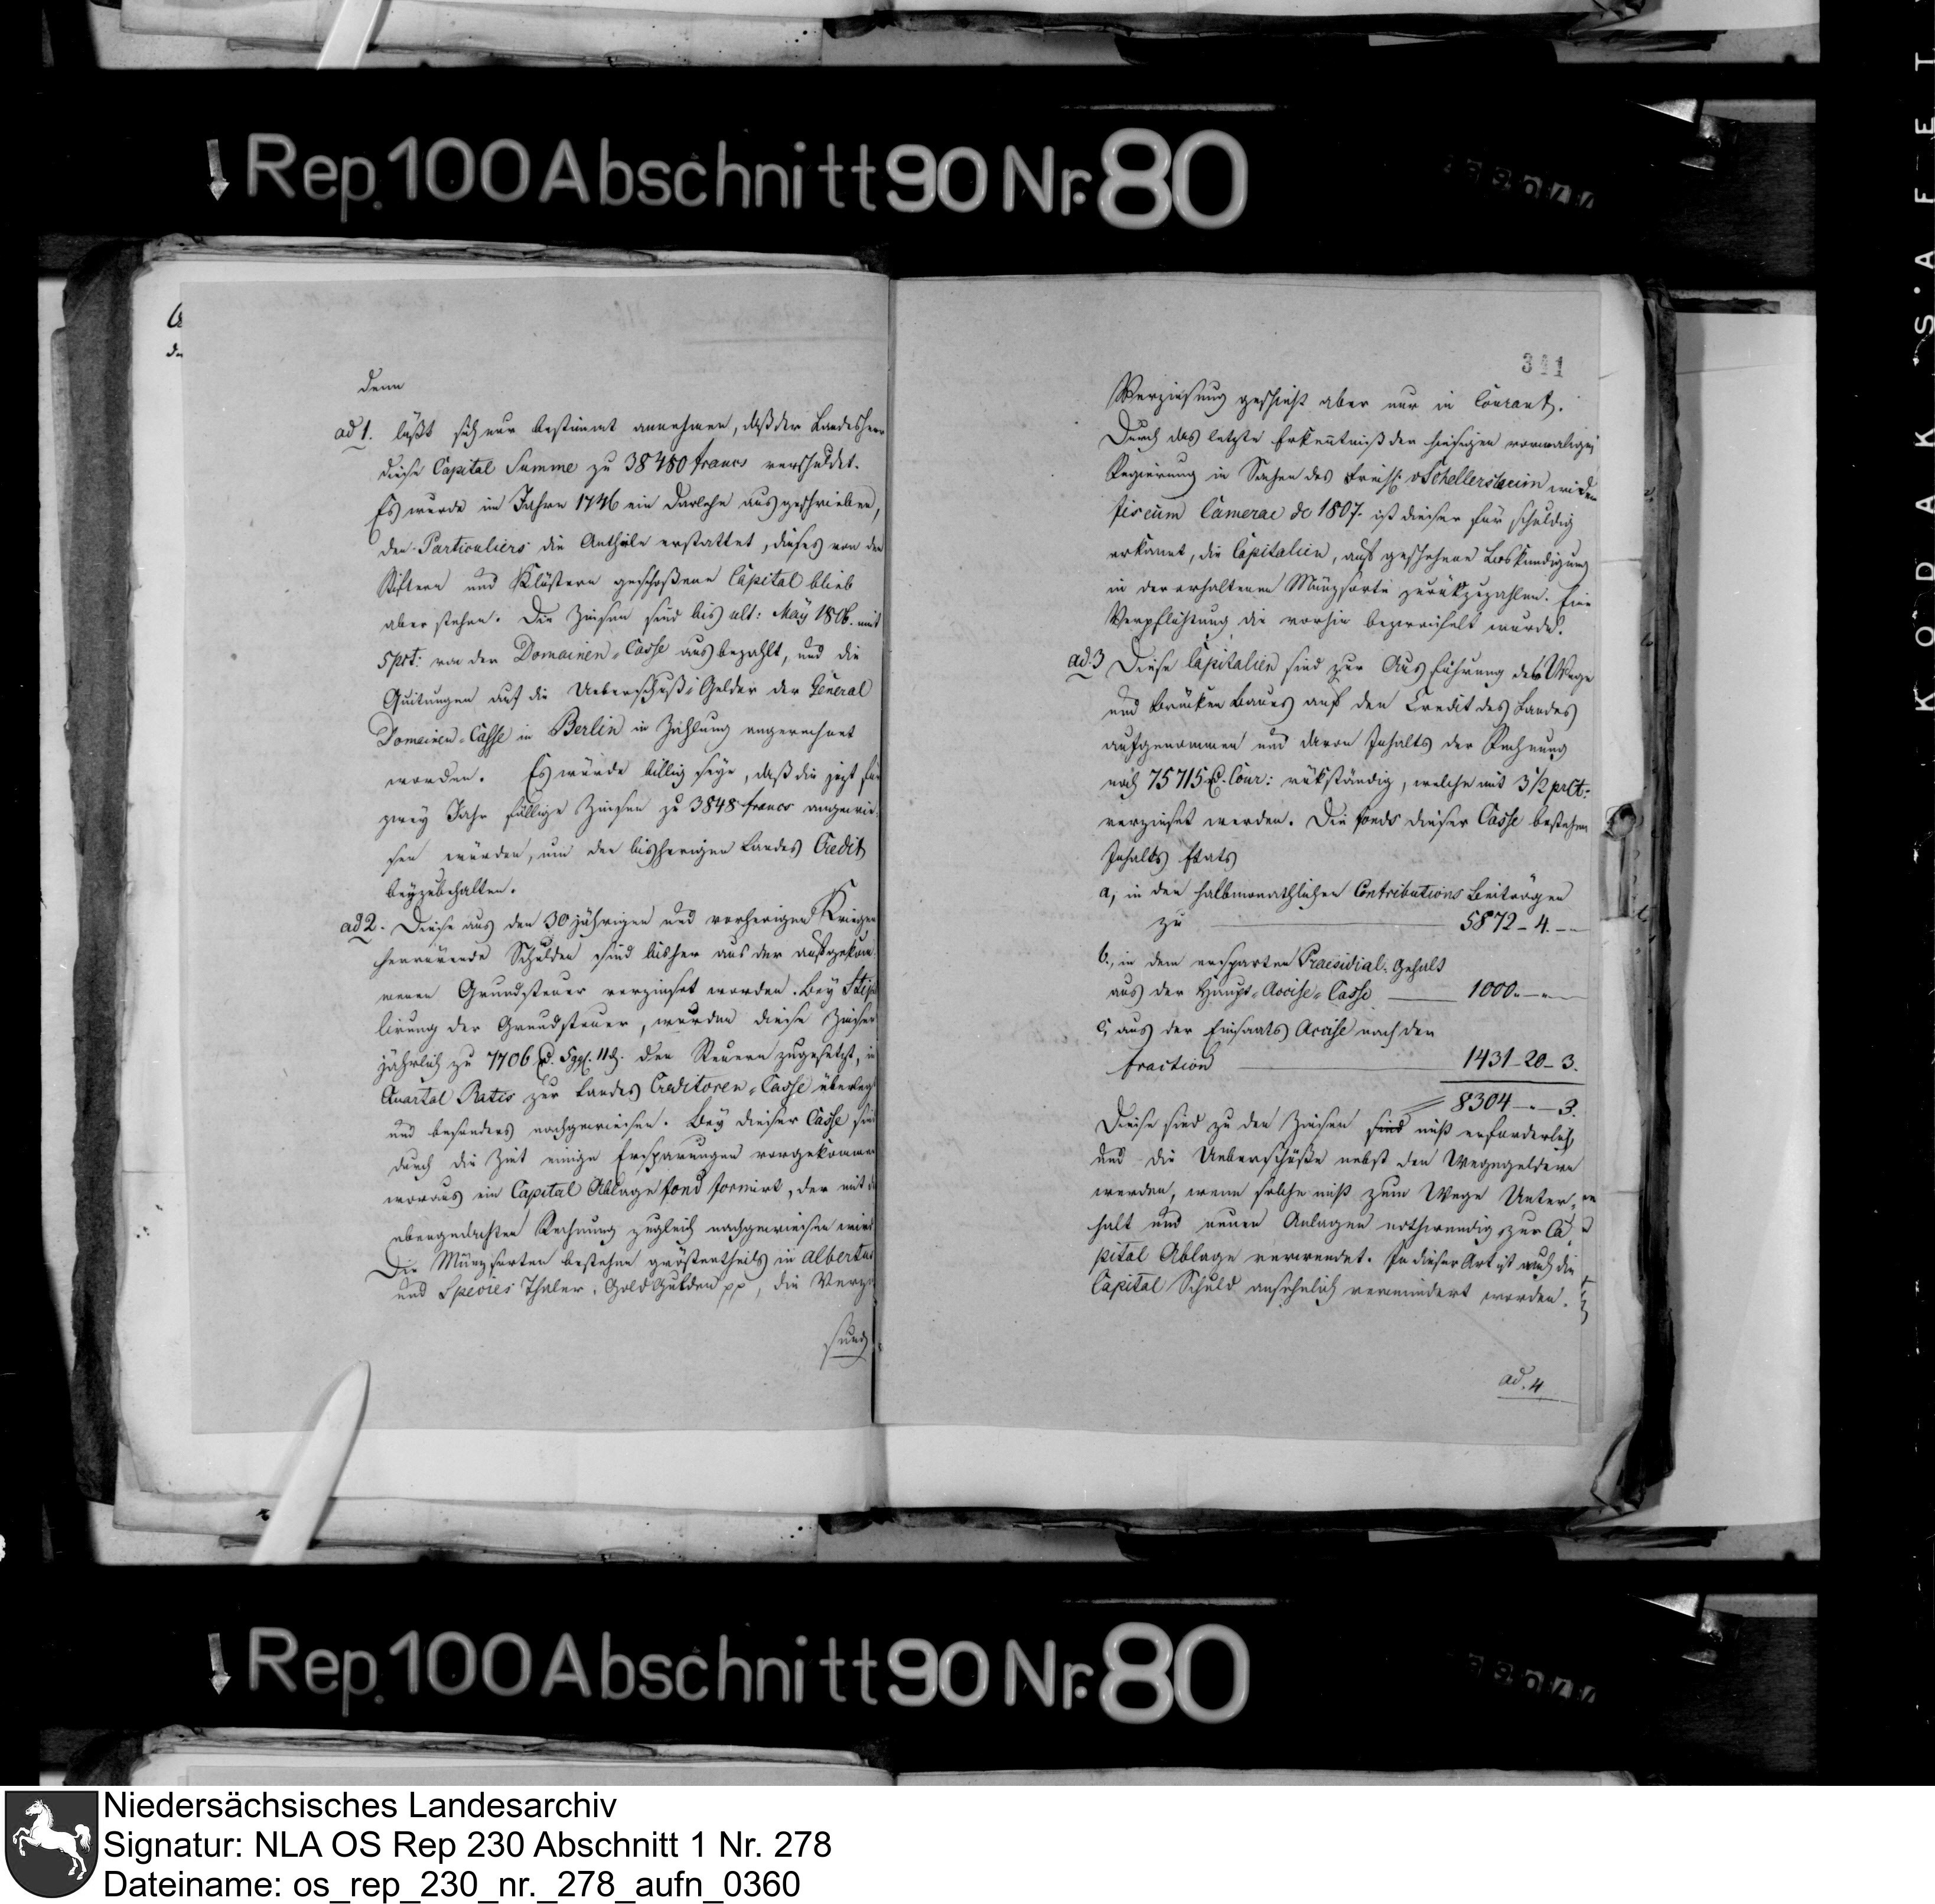 Rep. 100 Abschnitt 90 Nr. 80
denn
ad 1. läßt sich nur bestimmt annehmen, daß der Landesherr
diese Capital Summe zu 38480 francs verschuldet.
Es wurde im Jahre 1746 ein Darlehn ausgeschrieben,
den Particuliers die Antheile erstattet, dieses von den
Stiftern und Klöstern geschoßene Capital blieb
aber stehen. Die Zinsen sind bis ult: May 1806. mit
5 prt: von der Domainen-Casse ausbezahlt, und die
Quitungen auf die Ueberschuß-Gelder der General
Domainen-Casse in Berlin in Zahlung angerechnet
worden. Es würde billig seyn, daß die jezt für
zwey Jahr fällige Zinsen zu 3848 francs angewie-
sen würden, um den bisherigen Landes Credit
beyzubehalten.
ad 2. Diese aus den 30jährigen und vorherigen Kriegen
herrürende Schulden sind bisher aus der aufgekom-
menen Grundsteuer verzinset worden. Bey Stipu
lirung der Grundsteuer, wurden diese Zinsen
jährlich zu 7706 rt. 5 ggl. 11 d. den Steuern zugesetzt, in
Quartal Ratis zur Landes Creditoren-Casse überlegt
und besonders nachgewiesen. Bey dieser Casse sin
durch die Zeit einige Ersparungen vorgekommen
woraus ein Capital Ablage fond formirt, der mit d
obengedachten Rechnung zugleich nachgewiesen wird.
Die Münzsorten bestehen größtentheils in Albertus
und Species Thaler, Gold Gulden pp, die Verzin
sung
341
Verzinsung geschieht aber nur in Courant.
Durch das letzte Erkenntniß der hiesigen vormaligen
Regierung in Sachen des Freih. v Schellersheim wider
fiscum Camerae de 1807. ist dieser für schuldig
erkannt, die Capitalien, auf geschehene Loskündigung
in der erhaltenen Münzsorte zurükzuzahlen. Eine
Verpflichtung die vorhin bezweifelt wurde.
ad 3 Diese Capitalien sind zur Ausführung des Wege
und Brücken Baues auf den Credit des Landes
aufgenommen und davon Inhalts der Rechnung
noch 75715 rt. Cour: rükständig, welche mit 3½ prCt:
verzinset werden. Die fonds dieser Casse bestehen
Inhalts Etats
a, in den halbmonathlichen Contributions Beiträgen
zu 5872 - 4. - -
b., in dem ersparten Praesidial-Gehalt
aus der Haupt-Accise-Casse 1000. - - -
c, aus der Einsaats Accise nach den
fraction 1431 - 20 - 3.
8304 - - - 3.
Diese sind zu den Zinsen sind nicht erforderlich,
und die Ueberschüße nebst den Wegegeldern
werden, wenn solche nicht zum Wege Unter-
halt und neuen Anlagen nothwendig, zur Ca-
pital Ablage verwendet. In dieser Art ist auch die
Capital Schuld ansehnlich vermindert worden.
ad. 4
Rep. 100 Abschnitt 90 Nr. 80
KODAK SAFET
Niedersächsisches Landesarchiv
Signatur: NLA OS Rep 230 Abschnitt 1 Nr. 278
Dateiname: os_rep_230_nr._278_aufn_0360